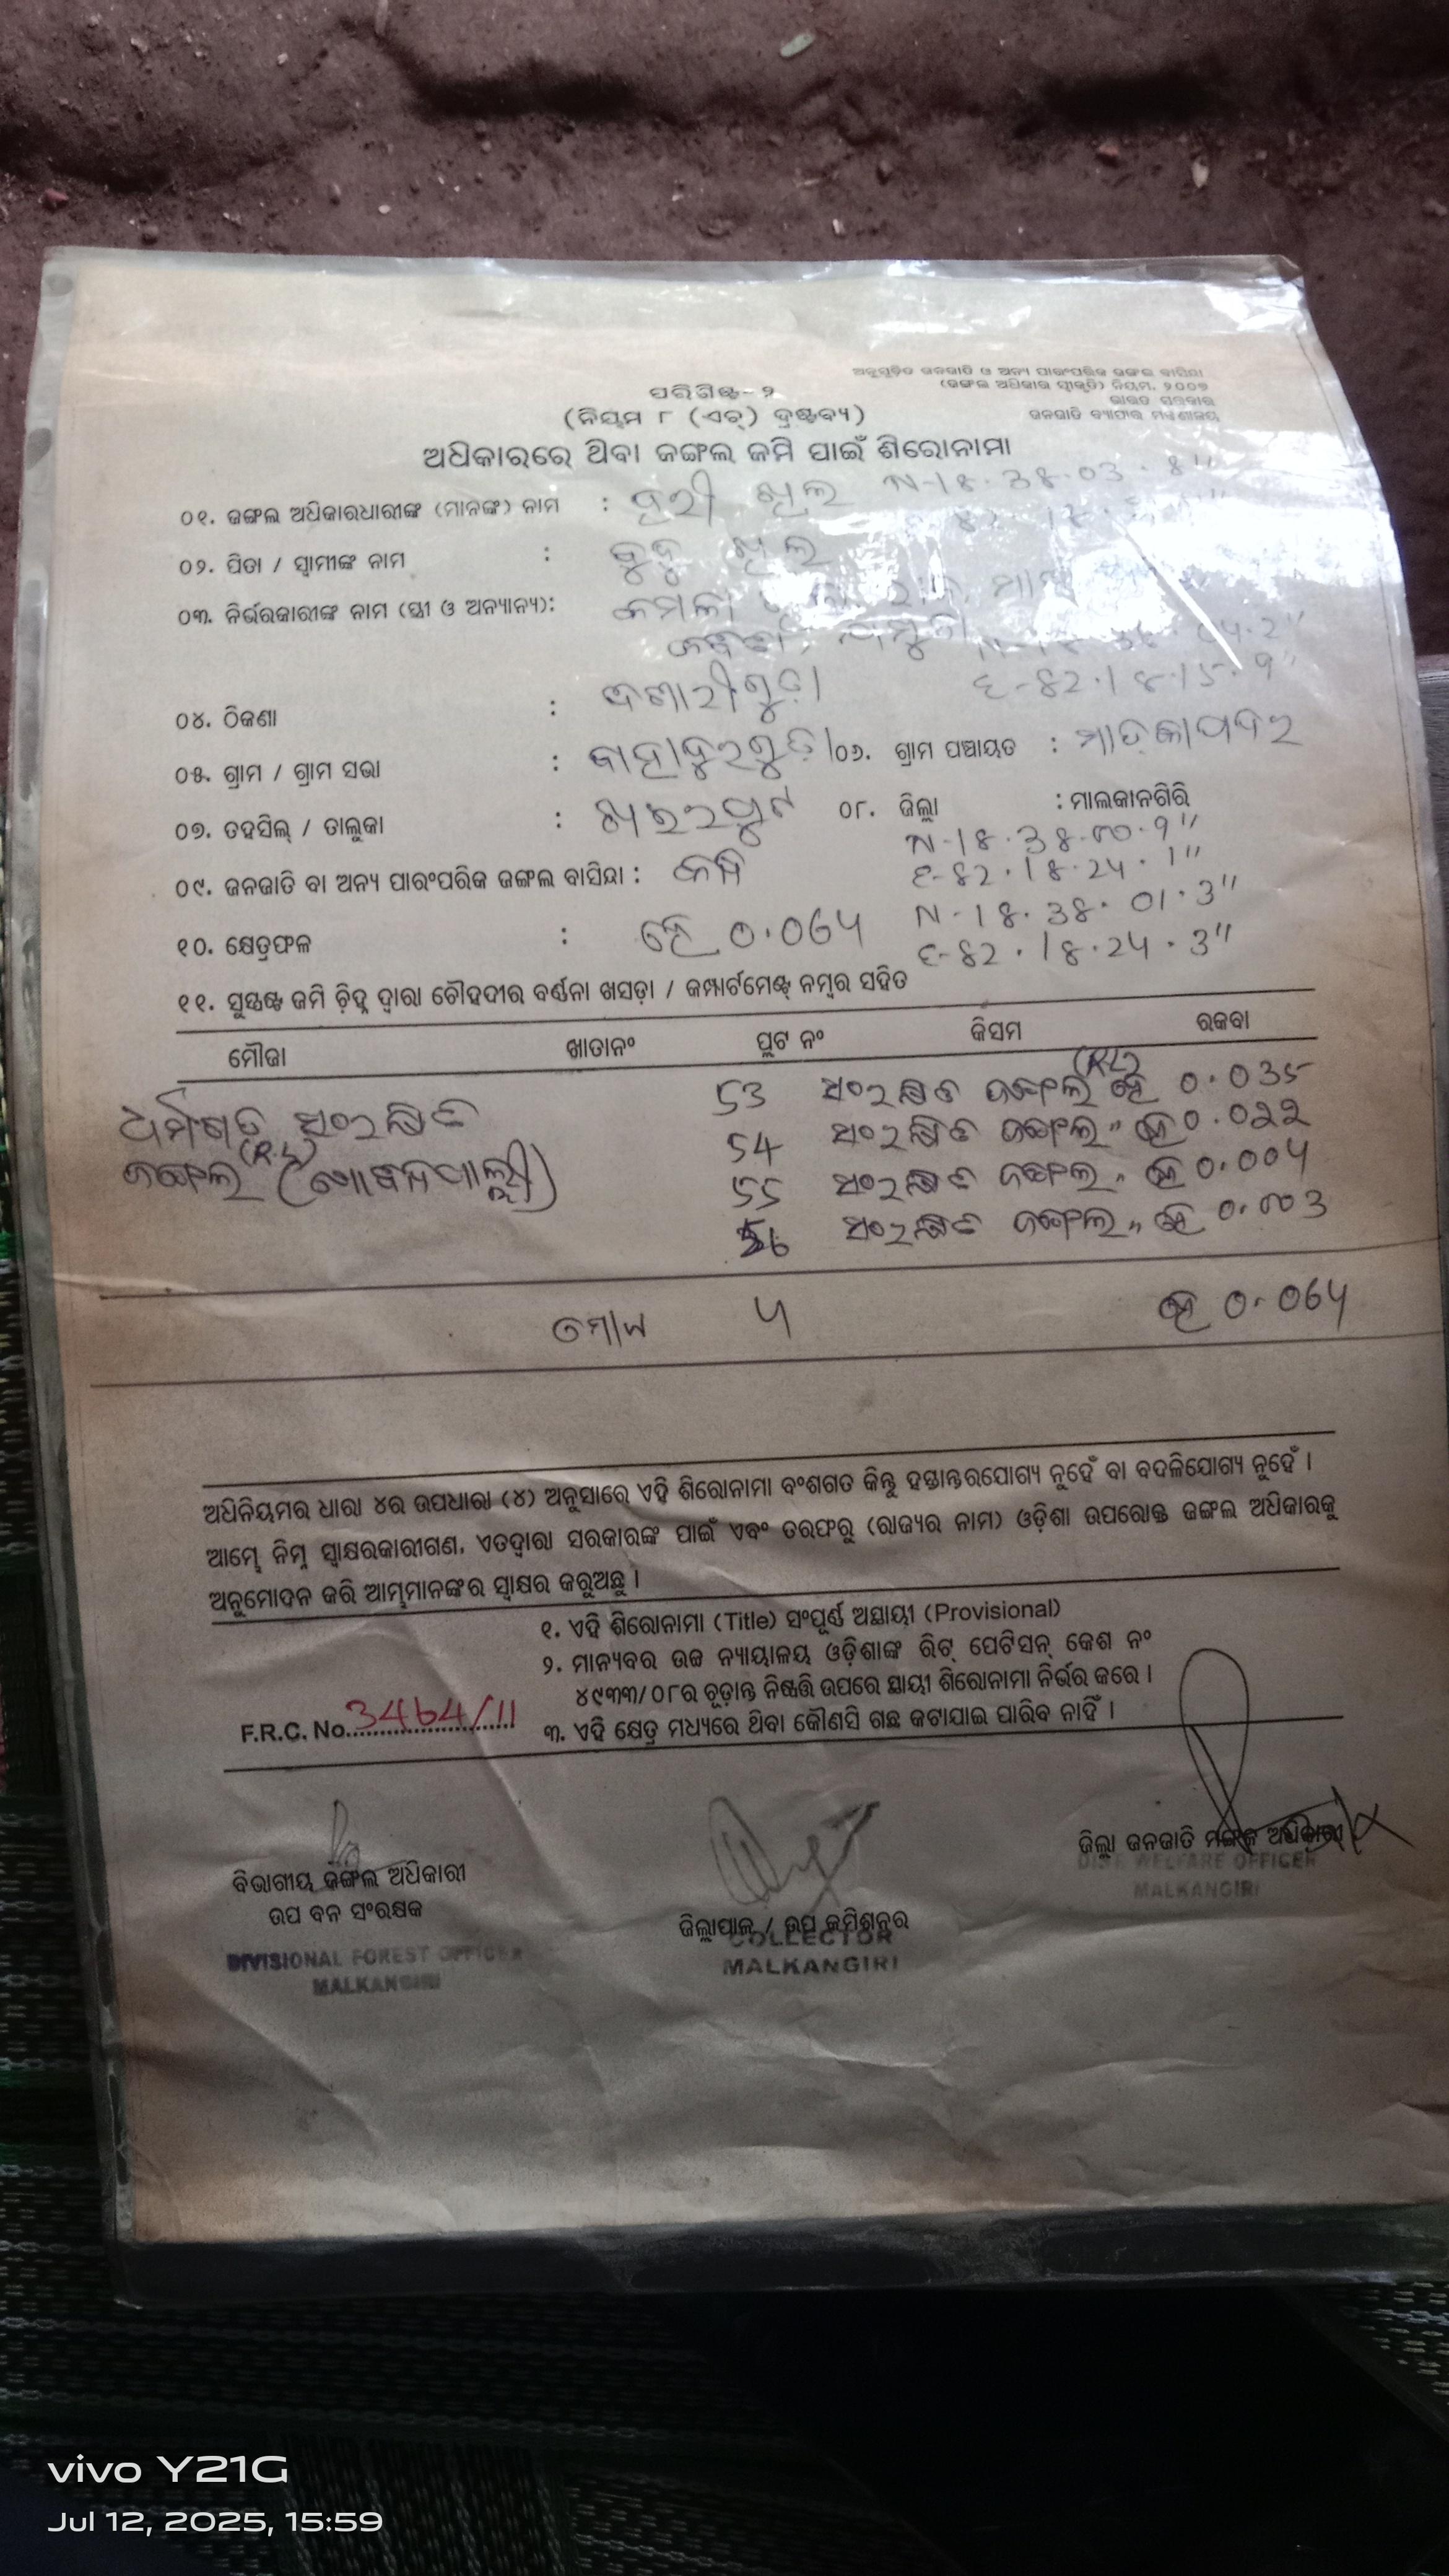 ଅନୁସୂଚିତ ଜନଜାତି ଓ ଅନ୍ୟ ପାରଂପରିକ ଜଙ୍ଗଲ ବାସିନ୍ଦା
(ଜଙ୍ଗଲ ଅଧିକାର ସ୍ୱୀକୃତି) ନିୟମ, ୨୦୦୭
ଭାରତ ସରକାର
ଜନଜାତି ବ୍ୟାପାର ମନ୍ତ୍ରଣାଳୟ
ପରିଶିଷ୍ଟ - ୨
(ନିୟମ ୮ (ଏଚ୍) ଦ୍ରଷ୍ଟବ୍ୟ)
ଅଧିକାରରେ ଥିବା ଜଙ୍ଗଲ ଜମି ପାଇଁ ଶିରୋନାମା
୦୧. ଜଙ୍ଗଲ ଅଧିକାରଧାରୀଙ୍କ (ମାନଙ୍କ) ନାମ : N-18.38.03.8"
୦୨. ପିତା / ସ୍ୱାମୀଙ୍କ ନାମ :
୦୩. ନିର୍ଭରକାରୀଙ୍କ ନାମ (ସ୍ତ୍ରୀ ଓ ଅନ୍ୟାନ୍ୟ):
୦୪. ଠିକଣା : E-82.18.15.9"
୦୫. ଗ୍ରାମ / ଗ୍ରାମ ସଭା : ବାହାଦୁରଗୁଡ଼ା ୦୬. ଗ୍ରାମ ପଞ୍ଚାୟତ : ମାଡ଼କାପଦର
୦୭. ତହସିଲ୍ / ତାଲୁକା : ଖଇରପୁଟ ୦୮. ଜିଲ୍ଲା : ମାଲକାନଗିରି
N-18.38.00.9"
୦୯. ଜନଜାତି ବା ଅନ୍ୟ ପାରଂପରିକ ଜଙ୍ଗଲ ବାସିନ୍ଦା : E-82.18.24.1"
N-18.38.01.3"
୧୦. କ୍ଷେତ୍ରଫଳ : ହେ 0.064 E-82.18.24.3"
୧୧. ସୁସ୍ପଷ୍ଟ ଜମି ଚିହ୍ନ ଦ୍ୱାରା ଚୌହଦୀର ବର୍ଣ୍ଣନା ଖସଡ଼ା / କମ୍ପାର୍ଟମେଣ୍ଟ୍ ନମ୍ବର ସହିତ
ମୌଜା ଖାତାନଂ ପ୍ଲଟ ନଂ କିସମ ରକବା
53 ସଂରକ୍ଷିତ ଜଙ୍ଗଲ (R.L) ହେ 0.035
ସଂରକ୍ଷିତ 54 ସଂରକ୍ଷିତ ଜଙ୍ଗଲ " ହେ 0.022
ଜଙ୍ଗଲ (R.L) 55 ସଂରକ୍ଷିତ ଜଙ୍ଗଲ " ହେ 0.004
56 ସଂରକ୍ଷିତ ଜଙ୍ଗଲ " ହେ 0.003
ମୋଟ ୪ ହେ 0.064
ଅଧିନିୟମର ଧାରା ୪ର ଉପଧାରା (୪) ଅନୁସାରେ ଏହି ଶିରୋନାମା ବଂଶଗତ କିନ୍ତୁ ହସ୍ତାନ୍ତରଯୋଗ୍ୟ ନୁହେଁ ବା ବଦଳିଯୋଗ୍ୟ ନୁହେଁ ।
ଆମ୍ଭେ ନିମ୍ନ ସ୍ୱାକ୍ଷରକାରୀଗଣ, ଏତଦ୍ଦ୍ୱାରା ସରକାରଙ୍କ ପାଇଁ ଏବଂ ତରଫରୁ (ରାଜ୍ୟର ନାମ) ଓଡ଼ିଶା ଉପରୋକ୍ତ ଜଙ୍ଗଲ ଅଧିକାରକୁ
ଅନୁମୋଦନ କରି ଆମ୍ଭମାନଙ୍କର ସ୍ୱାକ୍ଷର କରୁଅଛୁ ।
୧. ଏହି ଶିରୋନାମା (Title) ସଂପୂର୍ଣ୍ଣ ଅସ୍ଥାୟୀ (Provisional)
୨. ମାନ୍ୟବର ଉଚ୍ଚ ନ୍ୟାୟାଳୟ ଓଡ଼ିଶାଙ୍କ ରିଟ୍ ପେଟିସନ୍ କେଶ ନଂ
୪୯୩୩/୦୮ର ଚୂଡ଼ାନ୍ତ ନିଷ୍ପତ୍ତି ଉପରେ ସ୍ଥାୟୀ ଶିରୋନାମା ନିର୍ଭର କରେ ।
F.R.C. No. 3464/11 ୩. ଏହି କ୍ଷେତ୍ର ମଧ୍ୟରେ ଥିବା କୌଣସି ଗଛ କଟାଯାଇ ପାରିବ ନାହିଁ ।
ବିଭାଗୀୟ ଜଙ୍ଗଲ ଅଧିକାରୀ
ଉପ ବନ ସଂରକ୍ଷକ
DIVISIONAL FOREST OFFICER
MALKANGIRI
ଜିଲ୍ଲାପାଳ / ଉପ କମିଶନର
COLLECTOR
MALKANGIRI
ଜିଲ୍ଲା ଜନଜାତି ମଙ୍ଗଳ ଅଧିକାରୀ
DIST. WELFARE OFFICER
MALKANGIRI
vivo Y21G
Jul 12, 2025, 15:59